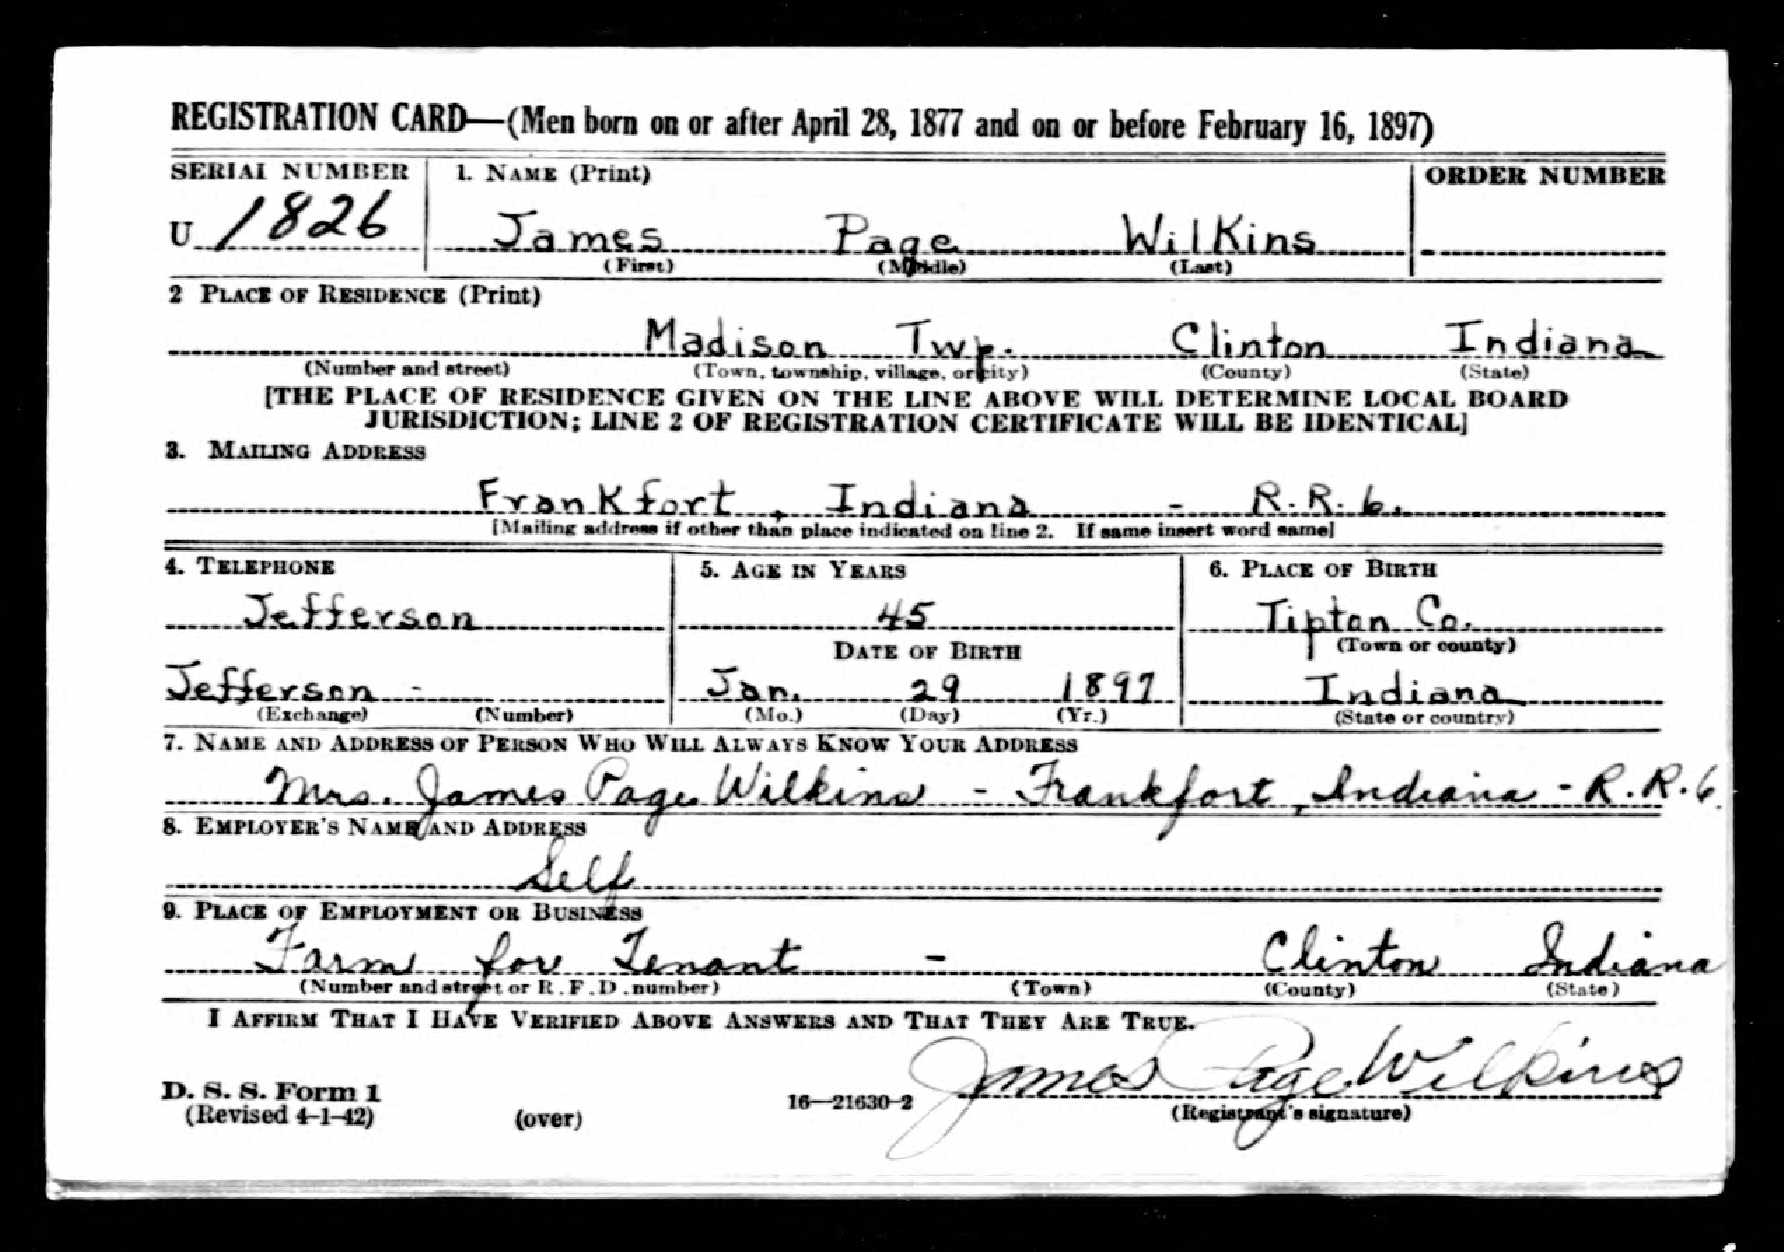 REGISTRATION CARD—(Men born on or after April 28, 1877 and on or before February 16, 1897)
SERIAL NUMBER 1. NAME (Print) ORDER NUMBER
U 1826 James Page Wilkins
(First) (Middle) (Last)
2 PLACE OF RESIDENCE (Print)
Madison Twp. Clinton Indiana
(Number and street) (Town, township, village, or city) (County) (State)
[THE PLACE OF RESIDENCE GIVEN ON THE LINE ABOVE WILL DETERMINE LOCAL BOARD
JURISDICTION; LINE 2 OF REGISTRATION CERTIFICATE WILL BE IDENTICAL]
3. MAILING ADDRESS
Frankfort, Indiana - R.R. 6.
[Mailing address if other than place indicated on line 2. If same insert word same]
4. TELEPHONE 5. AGE IN YEARS 6. PLACE OF BIRTH
Jefferson 45 Tipton Co.
DATE OF BIRTH (Town or county)
Jefferson - Jan. 29 1897 Indiana
(Exchange) (Number) (Mo.) (Day) (Yr.) (State or country)
7. NAME AND ADDRESS OF PERSON WHO WILL ALWAYS KNOW YOUR ADDRESS
Mrs. James Page Wilkins - Frankfort, Indiana - R.R. 6.
8. EMPLOYER'S NAME AND ADDRESS
Self
9. PLACE OF EMPLOYMENT OR BUSINESS
Farm for Tenant - Clinton Indiana
(Number and street or R.F.D. number) (Town) (County) (State)
I AFFIRM THAT I HAVE VERIFIED ABOVE ANSWERS AND THAT THEY ARE TRUE.
James Page Wilkins
D. S. S. Form 1
(Revised 4-1-42) (over) 16—21630-2 (Registrant's signature)